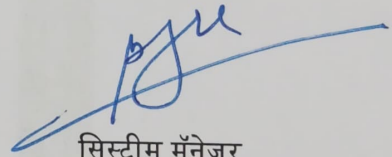 सिस्टीम मॅनेजर